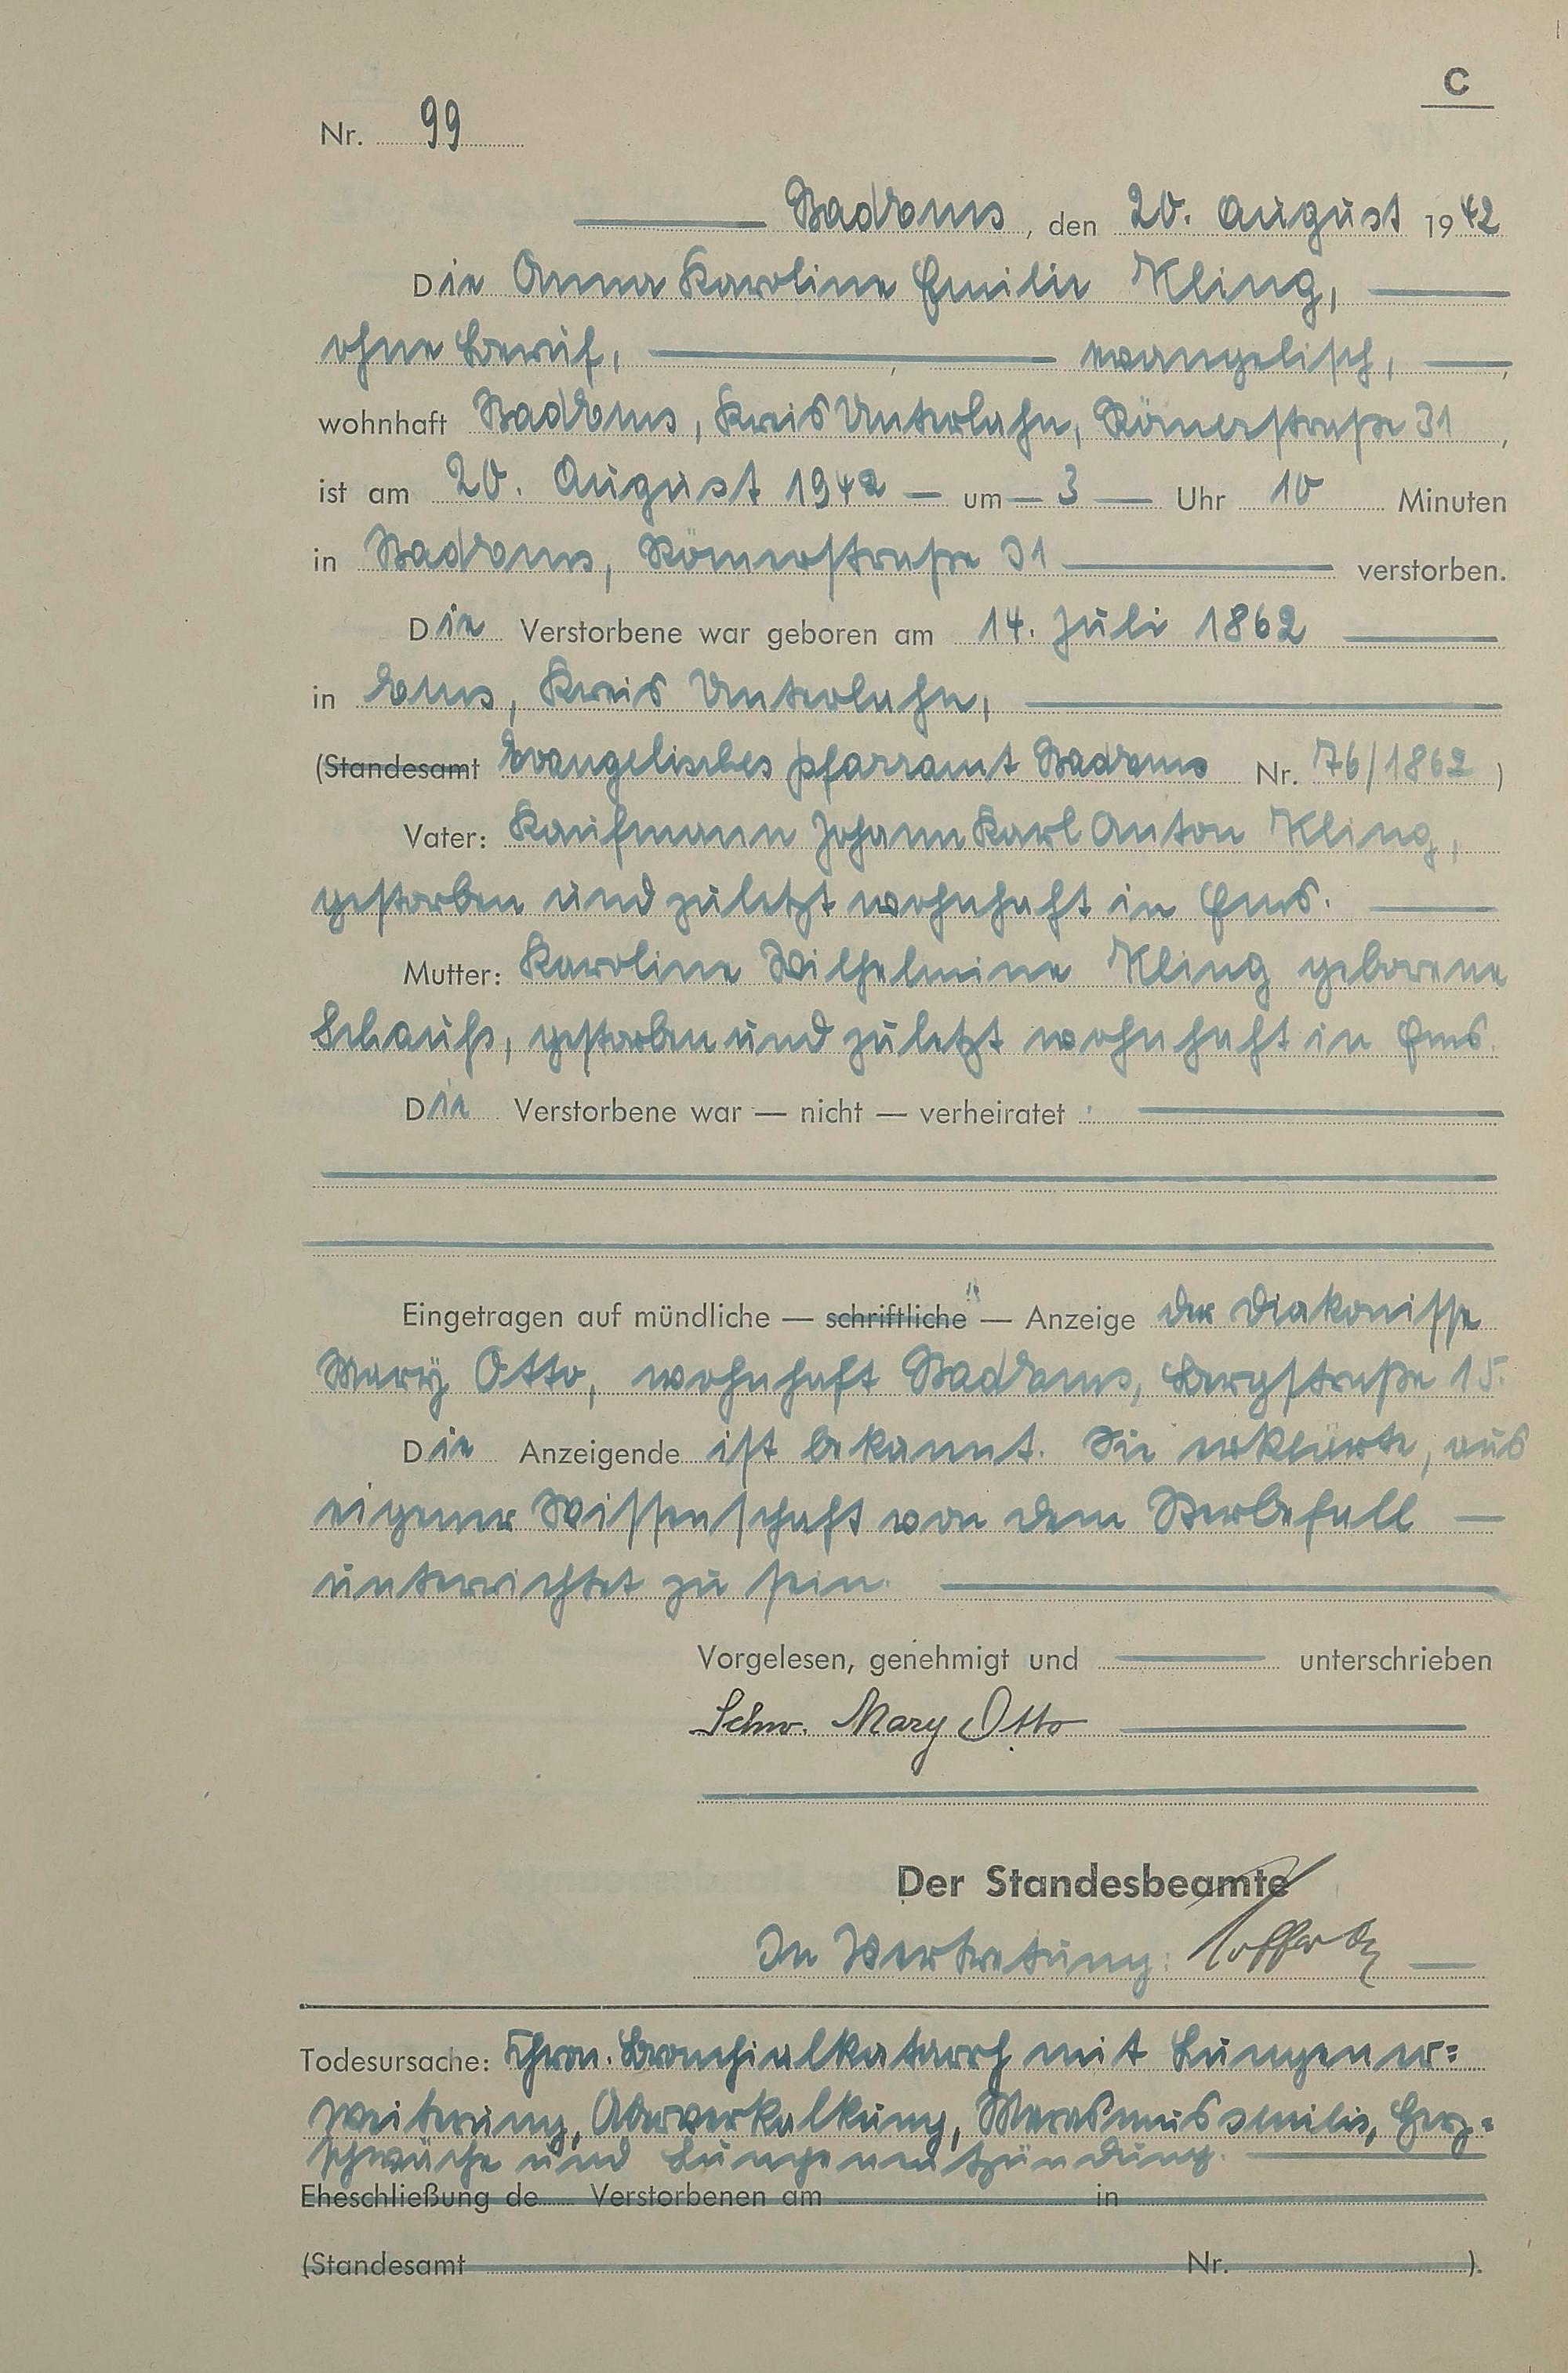 C
Nr. 99
Bad Ems, den 20. August 1942
Die Anna Karoline Emilie Kling,
ohne Beruf, evangelisch,
wohnhaft Bad Ems, Kreis Unterlahn, Römerstraße 31,
ist am 20. August 1942 um 3 Uhr 10 Minuten
in Bad Ems, Römerstraße 31 verstorben.
Die Verstorbene war geboren am 14. Juli 1862
in Ems, Kreis Unterlahn,
(Standesamt Evangelisches Pfarramt Bad Ems Nr. 76/1862)
Vater: Kaufmann Johann Karl Anton Kling,
gestorben und zuletzt wohnhaft in Ems.
Mutter: Karoline Wilhelmine Kling geborene
Schauß, gestorben und zuletzt wohnhaft in Ems.
Die Verstorbene war — nicht — verheiratet
Eingetragen auf mündliche — schriftliche — Anzeige der Diakonisse
Mary Otto, wohnhaft Bad Ems, Bergstraße 15.
Die Anzeigende ist bekannt. Sie erklärte, aus
eigener Wissenschaft von dem Sterbefall —
unterrichtet zu sein.
Vorgelesen, genehmigt und unterschrieben
Schw. Mary Otto
Der Standesbeamte
In Vertretung:
Todesursache: Chron. Bronchialkatarrh mit Lungener=
weiterung, Aderverkalkung, Marasmus senilis, Herz=
schwäche und Lungenentzündung.
Eheschließung de Verstorbenen am in
(Standesamt Nr. ).